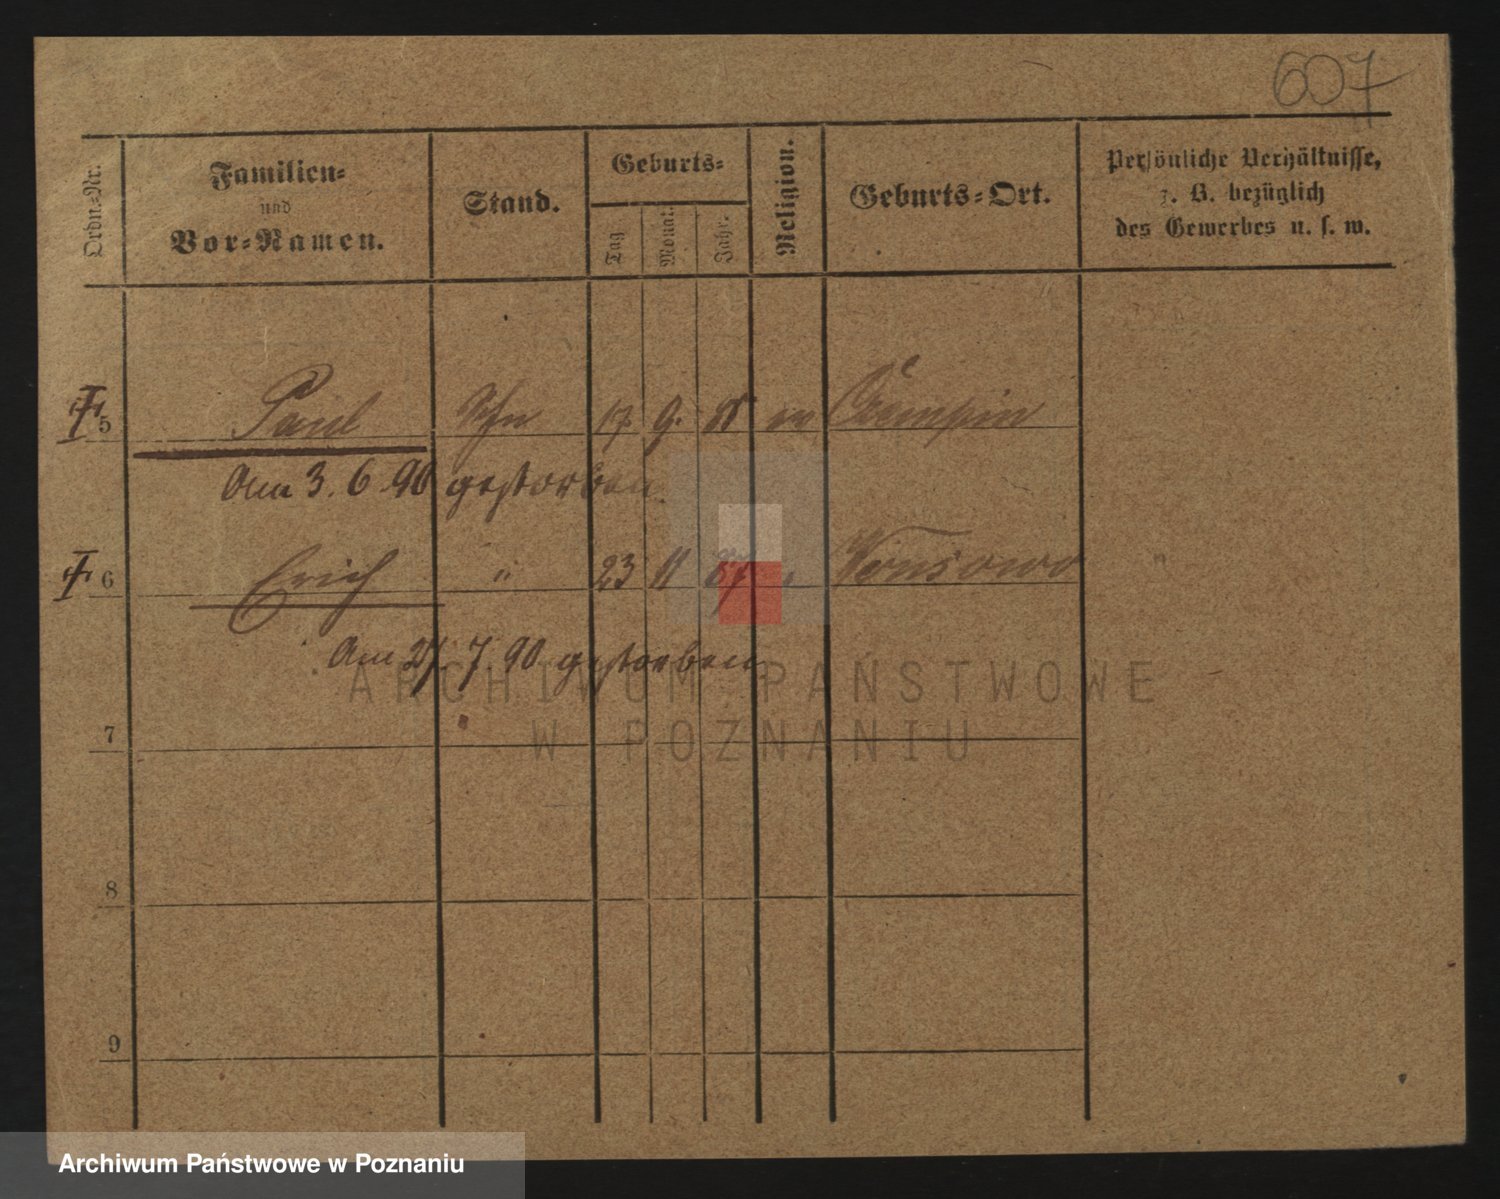 607
Ordn.-Nr. Familien- und Vor-Namen. Stand. Geburts- Tag Monat. Jahr. Religion. Geburts-Ort. Persönliche Verhältnisse, z. B. bezüglich des Gewerbes u. s. w.
5 Paul Sohn 17. 9. ev Czempin
Am 3. 6. 90 gestorben.
6 Erich " 23 11 87 " Wonsowo "
Am 27. 7. 90 gestorben
7
8
9
ARCHIWUM PAŃSTWOWE
W POZNANIU
Archiwum Państwowe w Poznaniu